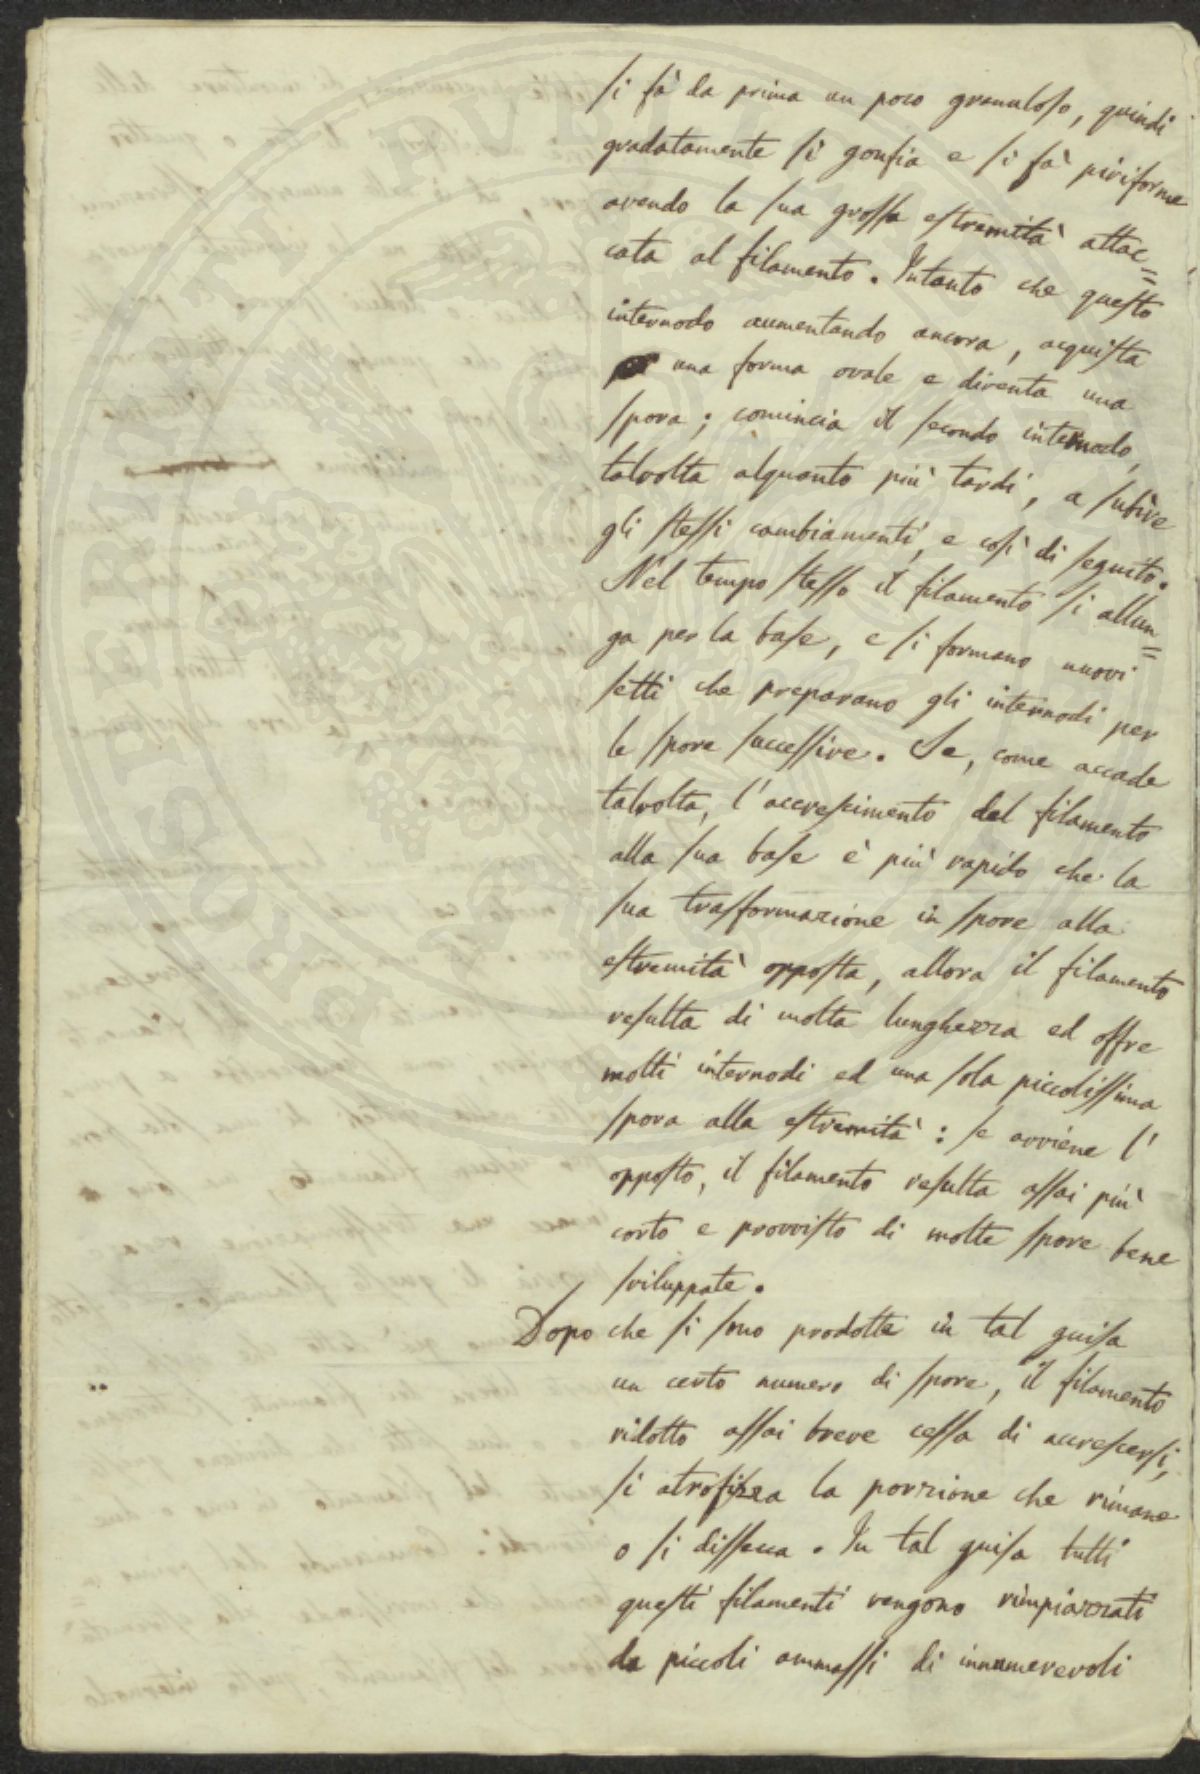 si fà da prima un poco granuloso, quindi
gradatamente si gonfia e si fà piriforme
avendo la sua grossa estremità attac=
cata al filamento. Intanto che questo
internodo aumentando ancora, acquista
una forma ovale e diventa una
spora; comincia il secondo internodo,
talvolta alquanto più tardi, a subire
gli stessi cambiamenti, e così di seguito.
Nel tempo stesso il filamento si allun=
ga per la base, e si formano nuovi
setti che preparano gli internodi per
le spore successive. Se, come accade
talvolta, l'accrescimento del filamento
alla sua base è più rapido che la
sua trasformazione in spore alla
estremità opposta, allora il filamento
resulta di molta lunghezza ed offre
molti internodi ed una sola piccolissima
spora alla estremità: se avviene l'
opposto, il filamento resulta assai più
corto e provvisto di molte spore bene
sviluppate.
Dopo che si sono prodotte in tal guisa
un certo numero di spore, il filamento
ridotto assai breve cessa di accrescersi,
si atrofizza la porzione che rimane
o si dissecca. In tal guisa tutti
questi filamenti vengono rimpiazzati
da piccoli ammassi di innumerevoli